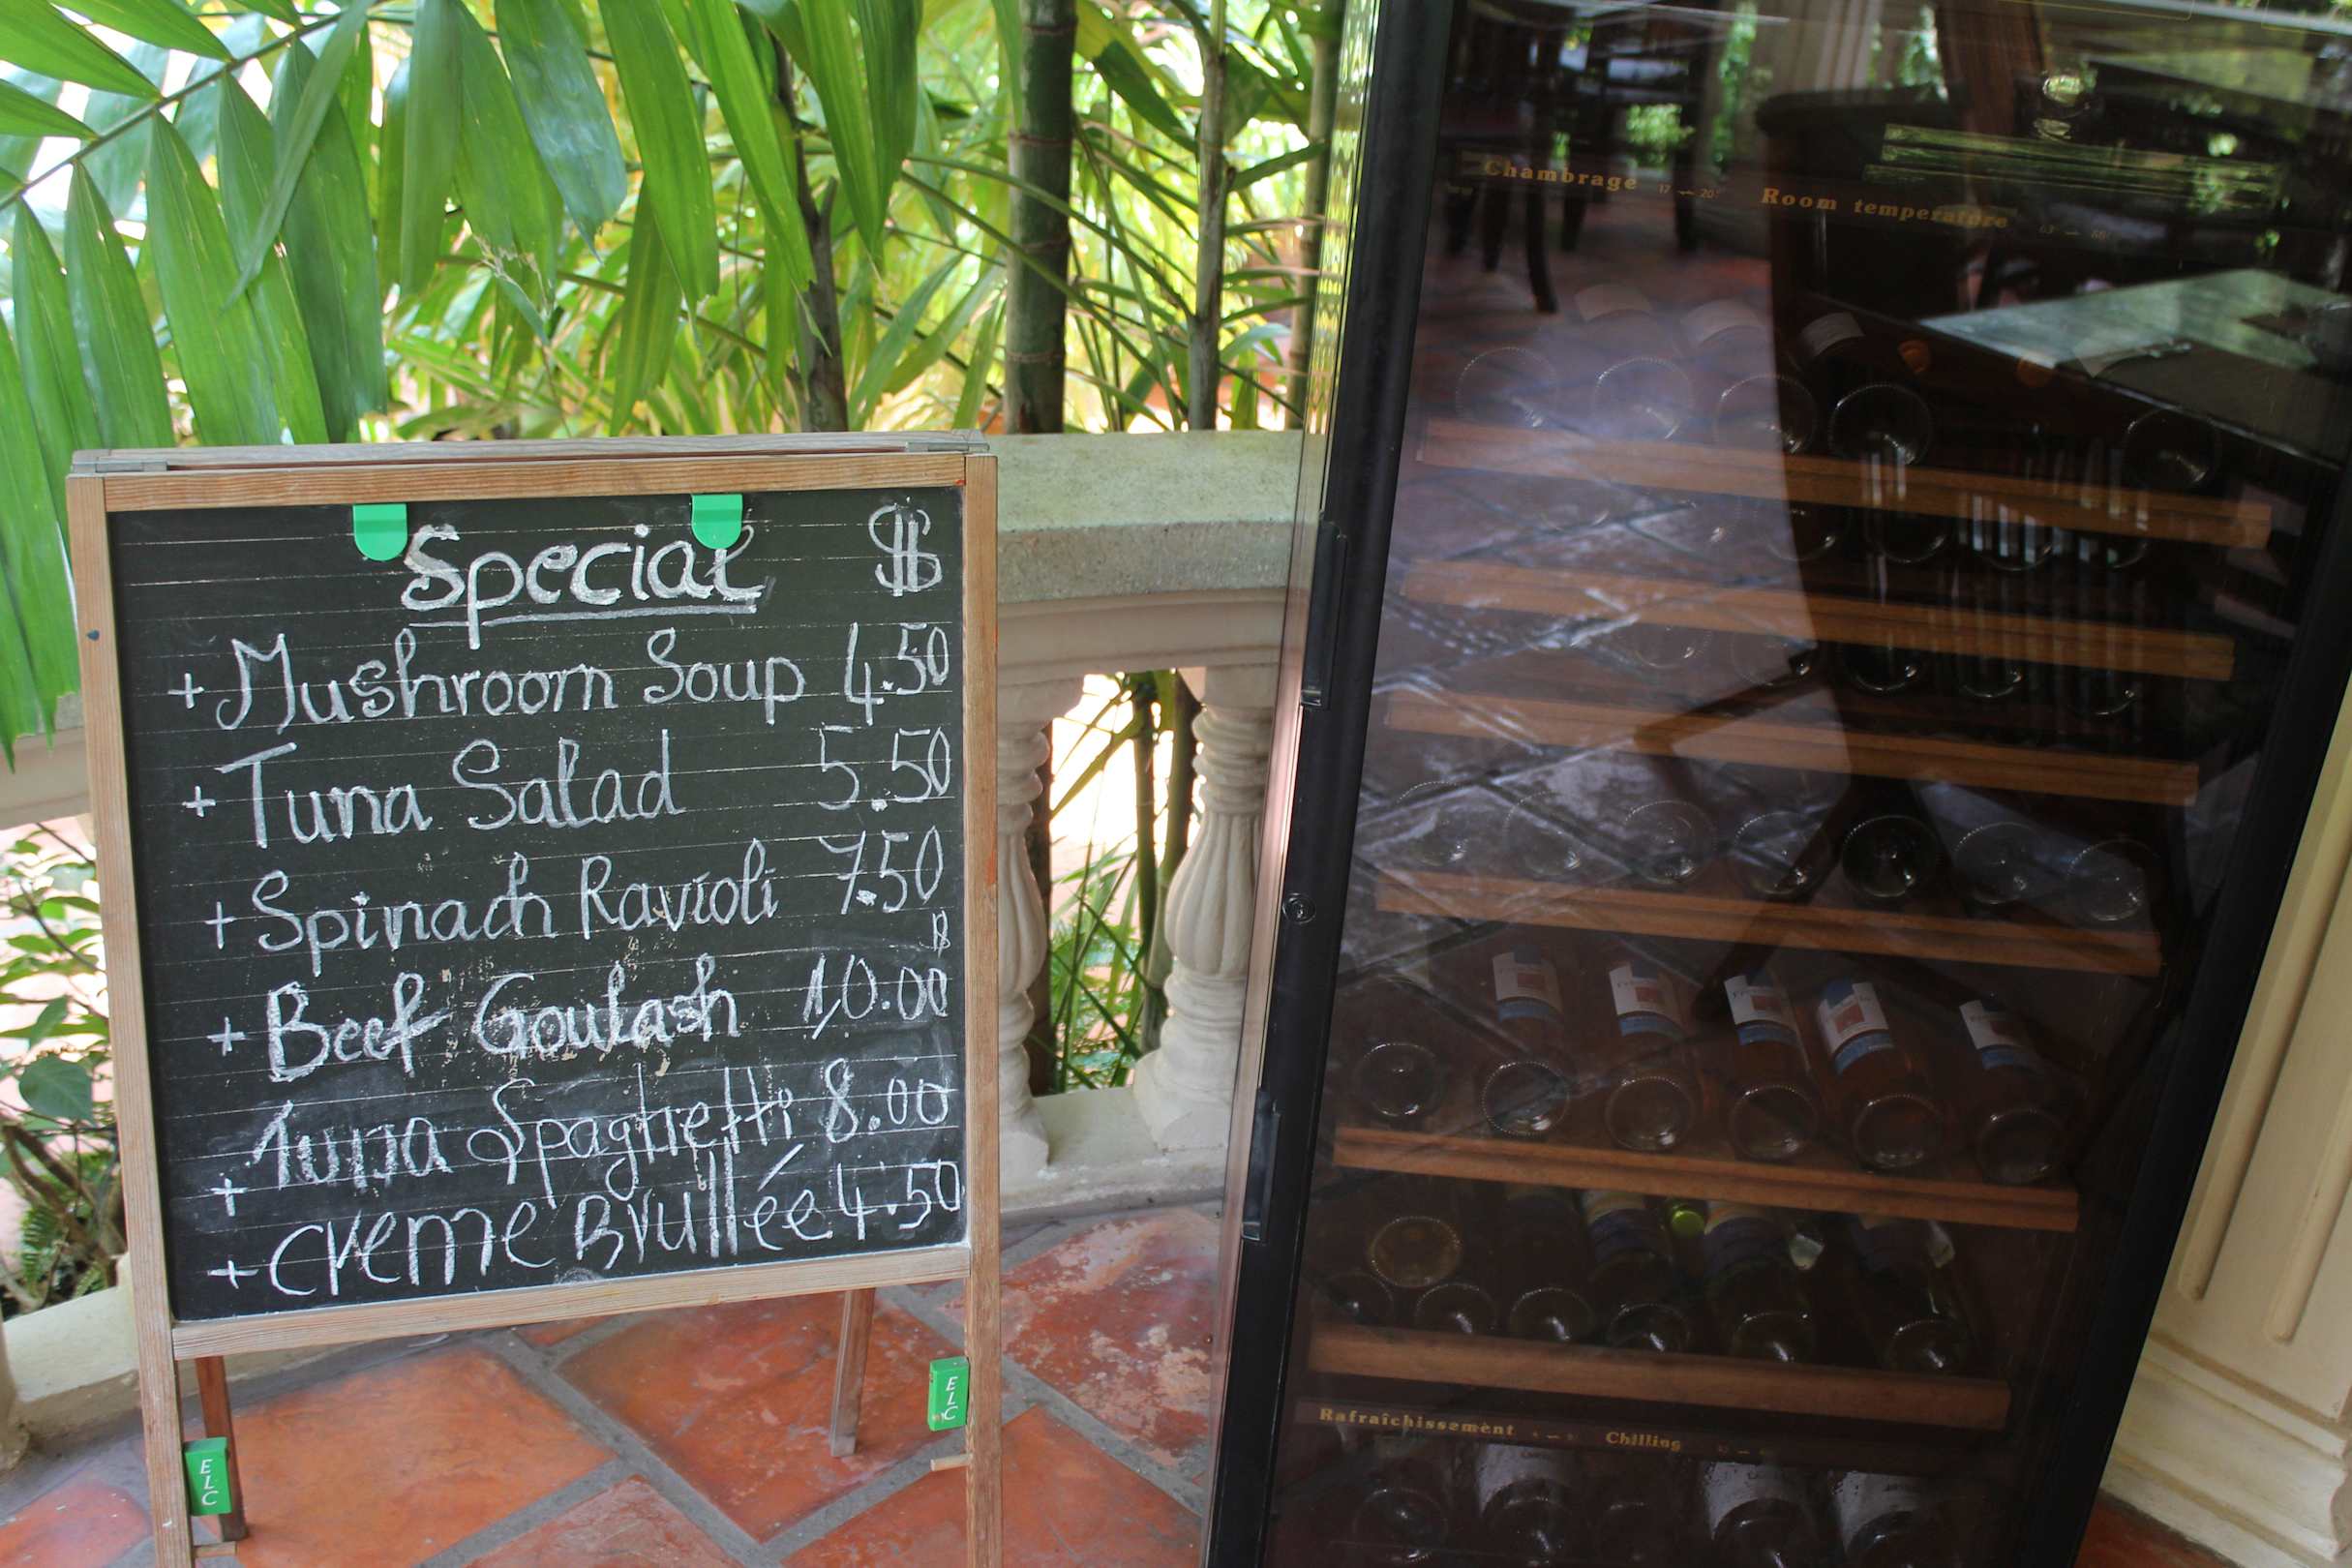 Special $
+ Mushroom Soup 4.50
+ Tuna Salad 5.50
+ Spinach Ravioli 7.50
+ Beef Goulash 10.00
+ Tuna Spaghetti 8.00
+ Creme Brullée 4.50
ELC
ELC
Chambrage 17 — 20° Room temperature
Rafraîchissement Chilling